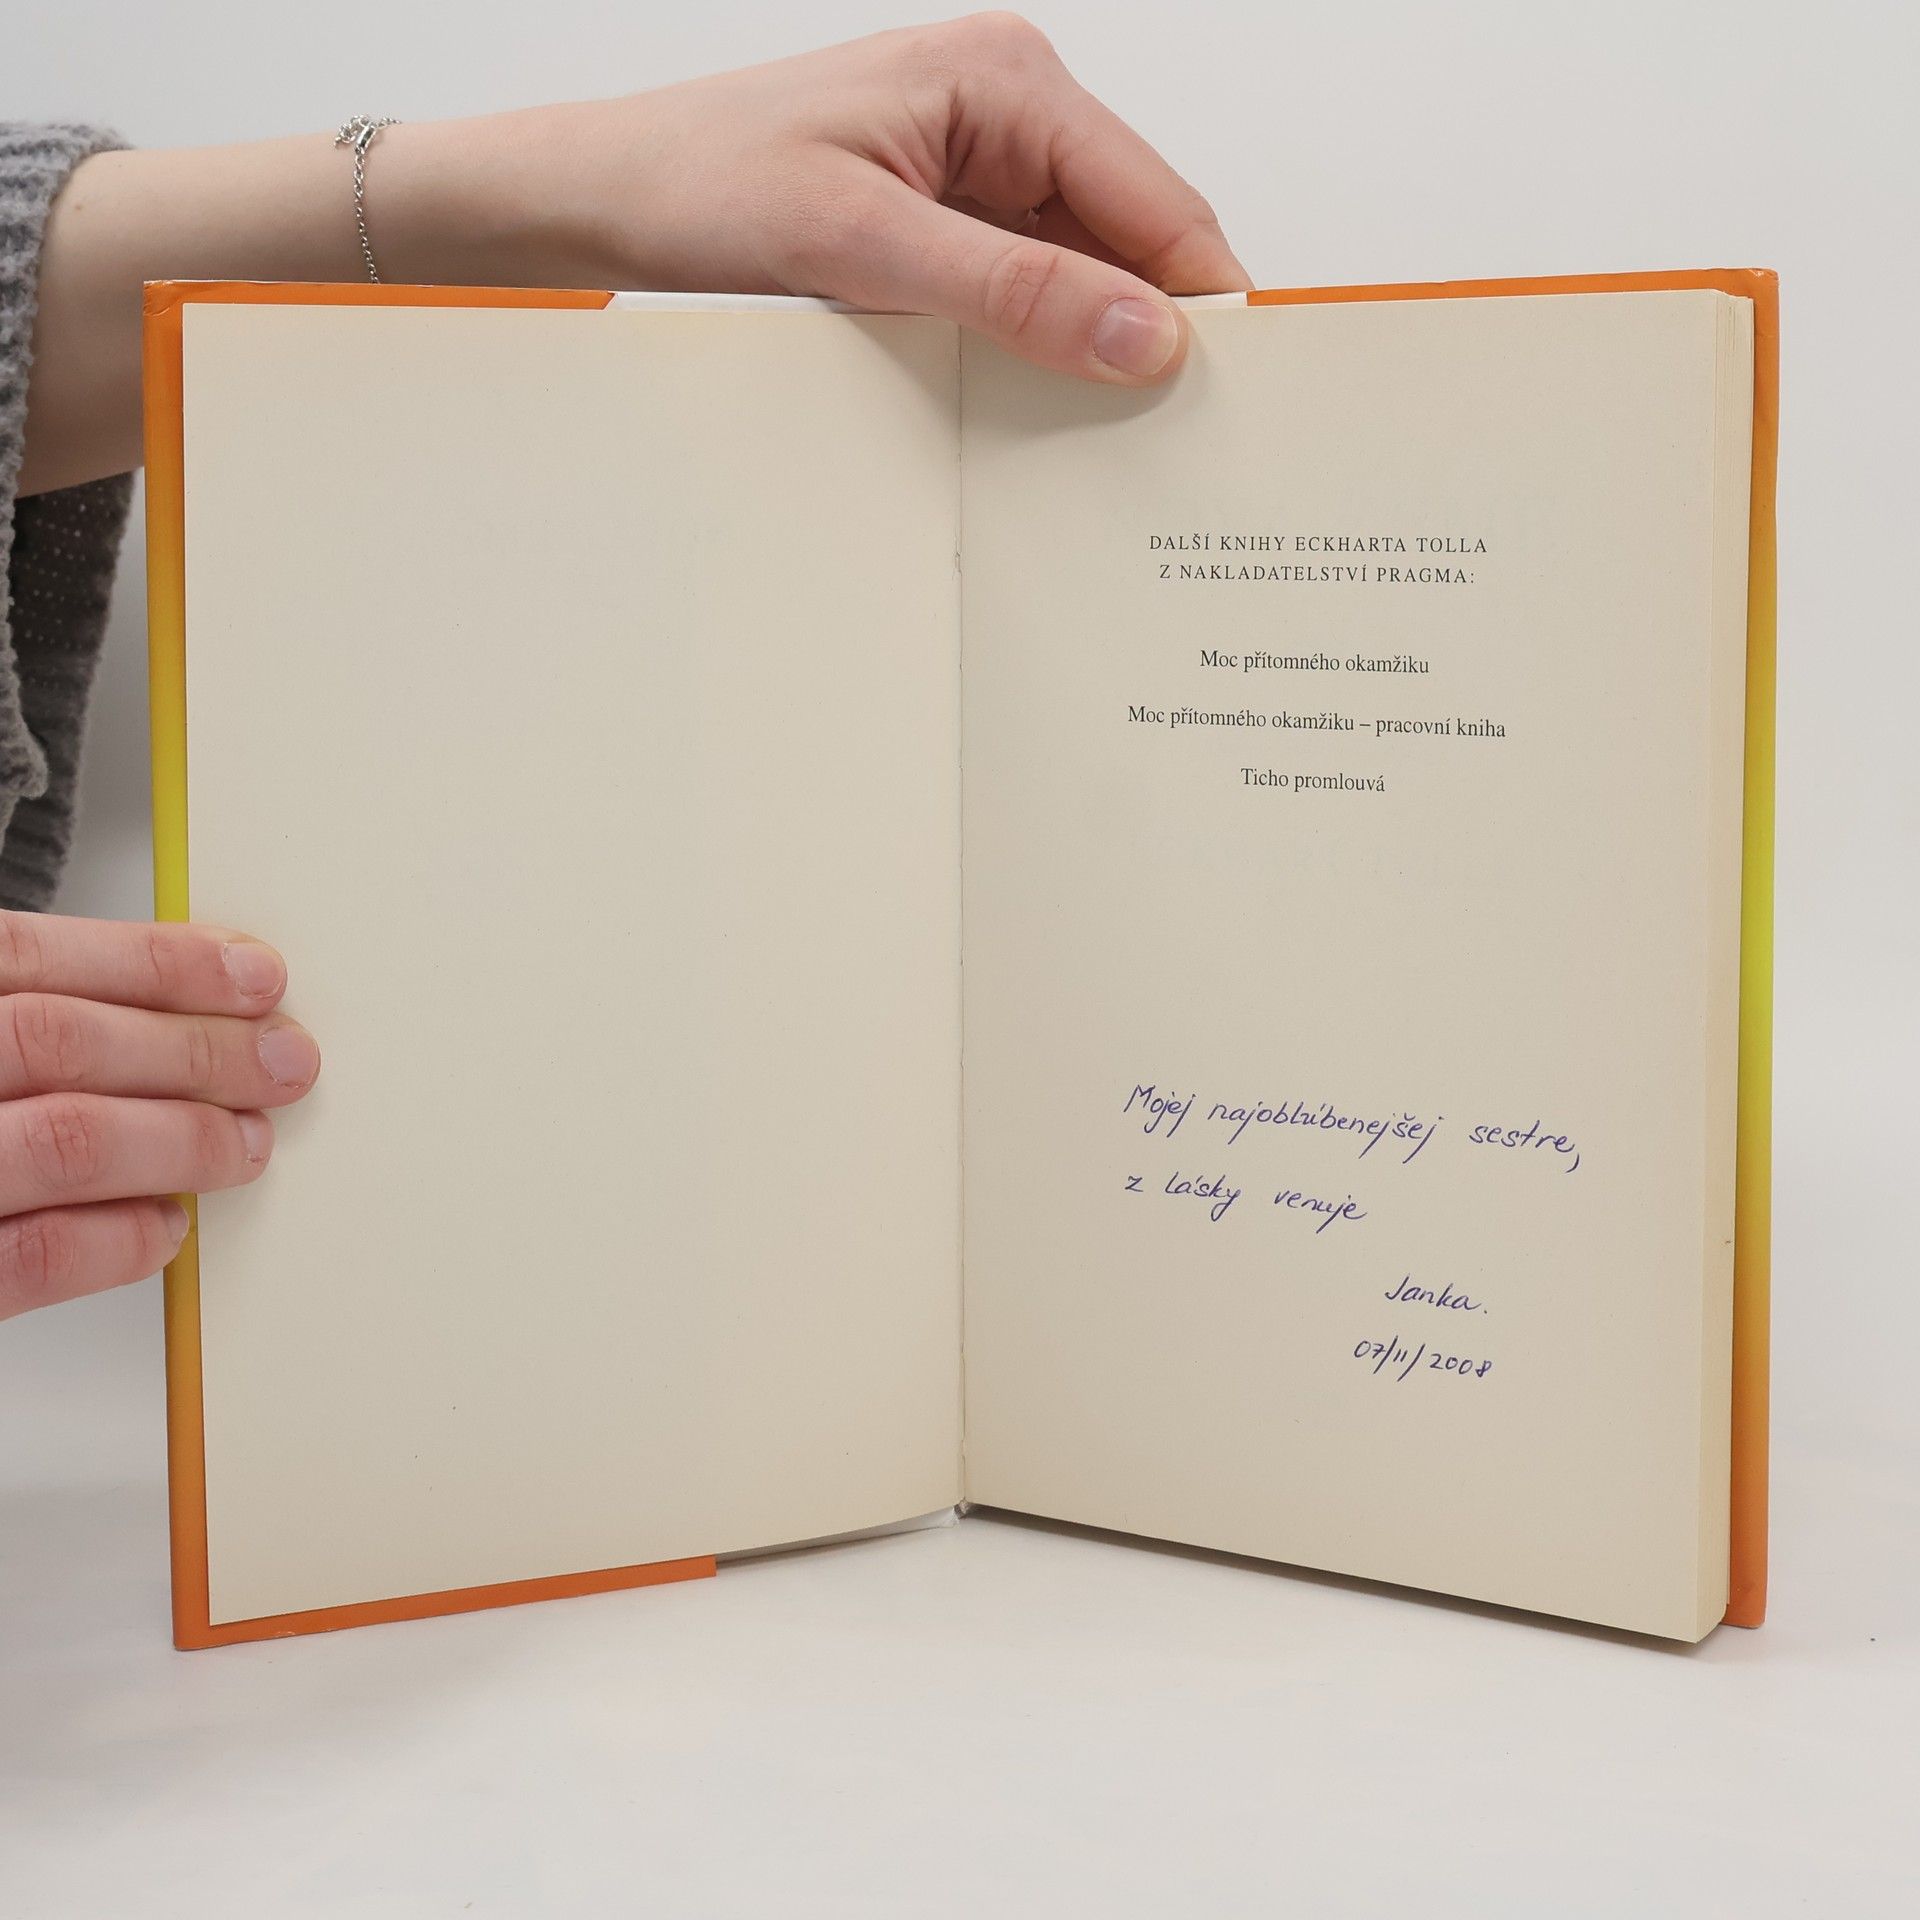 DALŠÍ KNIHY ECKHARTA TOLLA
Z NAKLADATELSTVÍ PRAGMA:
Moc přítomného okamžiku
Moc přítomného okamžiku – pracovní kniha
Ticho promlouvá
Mojej najobľúbenejšej sestre,
z lásky venuje
Janka.
07/11/2008